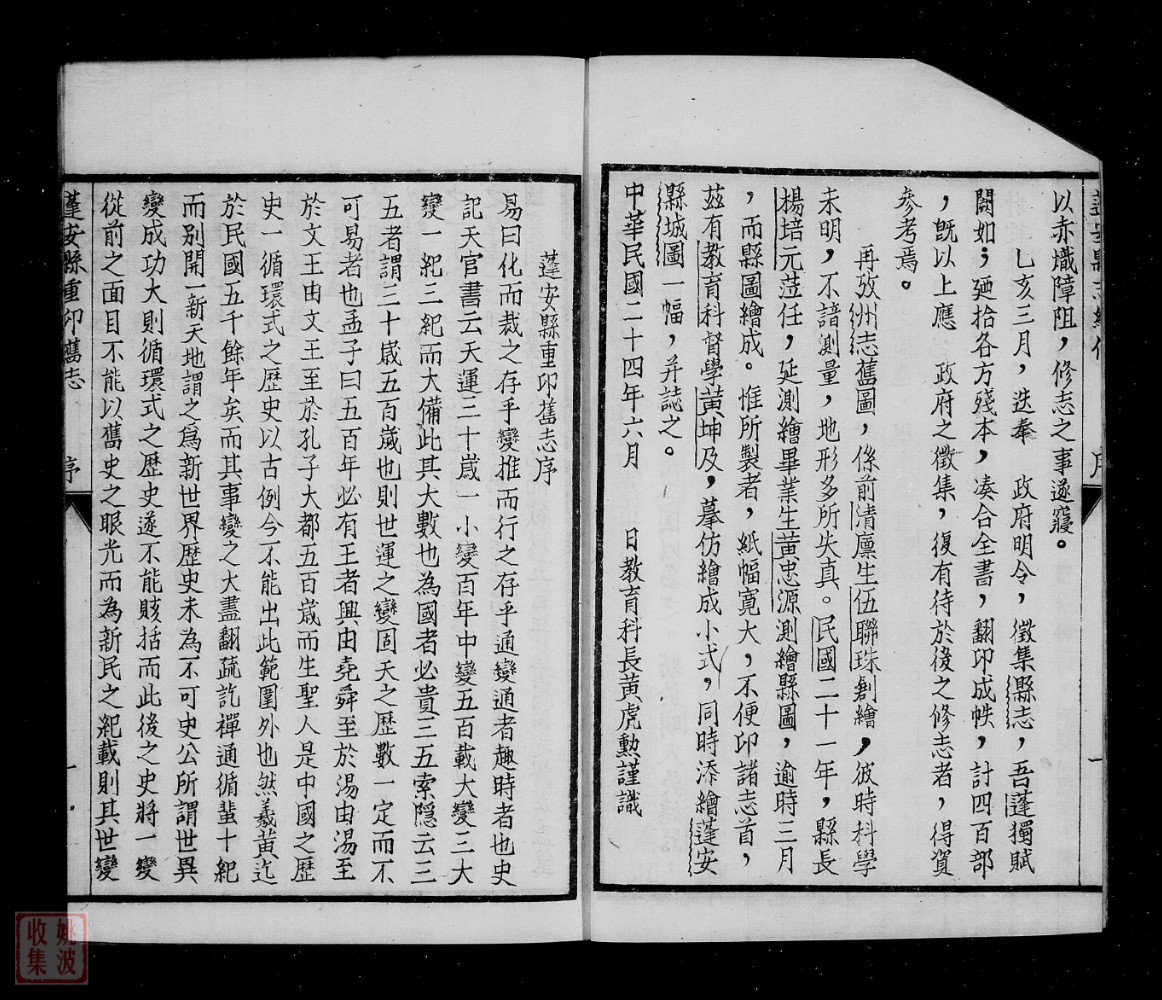 以赤熾障阻，修志之事遂寢。
乙亥三月，迭奉 政府明令，徵集縣志，吾蓬獨賦
闕如；廼拾各方殘本，凑合全書，翻印成帙，計四百部
，旣以上應 政府之徵集，復有待於後之修志者，得資
參考焉。
再攷州志舊圖，係前清廩生伍聯珠剏繪，彼時科學
未明，不諳測量，地形多所失真。民國二十一年，縣長
楊培元蒞任，延測繪畢業生黃忠源測繪縣圖，逾時三月
，而縣圖繪成。惟所製者，紙幅寬大，不便印諸志首，
茲有教育科督學黃坤及，摹仿繪成小式，同時添繪蓬安
縣城圖一幅，并誌之。
中華民國二十四年六月 日教育科長黃虎勳謹識
蓬安縣重印舊志序
易曰化而裁之存乎變推而行之存乎通變通者趣時者也史
記天官書云天運三十歲一小變百年中變五百載大變三大
變一紀三紀而大備此其大數也為國者必貴三五索隱云三
五者謂三十歲五百歲也則世運之變固天之歷數一定而不
可易者也孟子曰五百年必有王者興由堯舜至於湯由湯至
於文王由文王至於孔子大都五百歲而生聖人是中國之歷
史一循環式之歷史以古例今不能出此範圍外也然羲黃迄
於民國五千餘年矣而其事變之大盡翻疏訖禪通循蜚十紀
而別開一新天地謂之爲新世界歷史未為不可史公所謂世異
變成功大則循環式之歷史遂不能賅括而此後之史將一變
從前之面目不能以舊史之眼光而為新民之紀載則其世變
蓬安縣重印舊志 序 一
姚波
收集